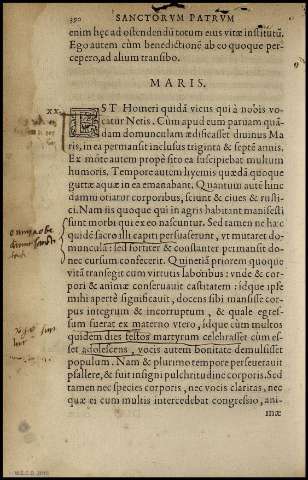 390 SANCTORVM PATRVM
enim hęc ad ostendendũ totum eius vitæ institutũ.
Ego autem cùm benedictionẽ ab eo quoque per-
cepero, ad alium transibo.
MARIS.
XX.
EST Homeri quidã vicus qui à nobis vo-
catur Netis. Cùm apud eum paruam quã-
dam domunculam ædificasset diuinus Ma-
ris, in ea permansit inclusus triginta & septẽ annis.
Ex mõte autem propè sito ea suscipiebat multum
humoris. Tempore autem hyemis quædã quoque
guttæ aquæ in ea emanabant. Quantum autẽ hinc
damni oriatur corporibus, sciunt & ciues & rusti-
ci. Nam iis quoque qui in agris habitant manifesti
sunt morbi qui ex eo nascuntur. Sed tamen ne hæc
quidẽ sacro illi capiti persuaserunt, vt mutaret do-
munculã: sed fortiter & constanter permansit do-
nec cursum confecerit. Quinetiã priorem quoque
vitã transegit cum virtutis laboribus: vnde & cor-
pori & animæ conseruauit castitatem: idque ipse
mihi apertè significauit, docens sibi mansisse cor-
pus integrum & incorruptum, & quale egres-
sum fuerat ex materno vtero, idque cùm multos
quidem dies festos martyrum celebrasset cùm es-
set adolescens, vocis autem bonitate demulsisset
populum. Nam & plurimo tempore perseuerauit
psallere, & fuit insigni pulchritudine corporis. Sed
tamen nec species corporis, nec vocis claritas, nec
quæ ei cum multis intercedebat congressio, ani-
mæ